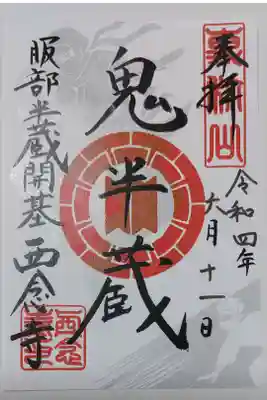 奉拝
令和四年
六月十一日
鬼半蔵
服部半蔵開基西念寺